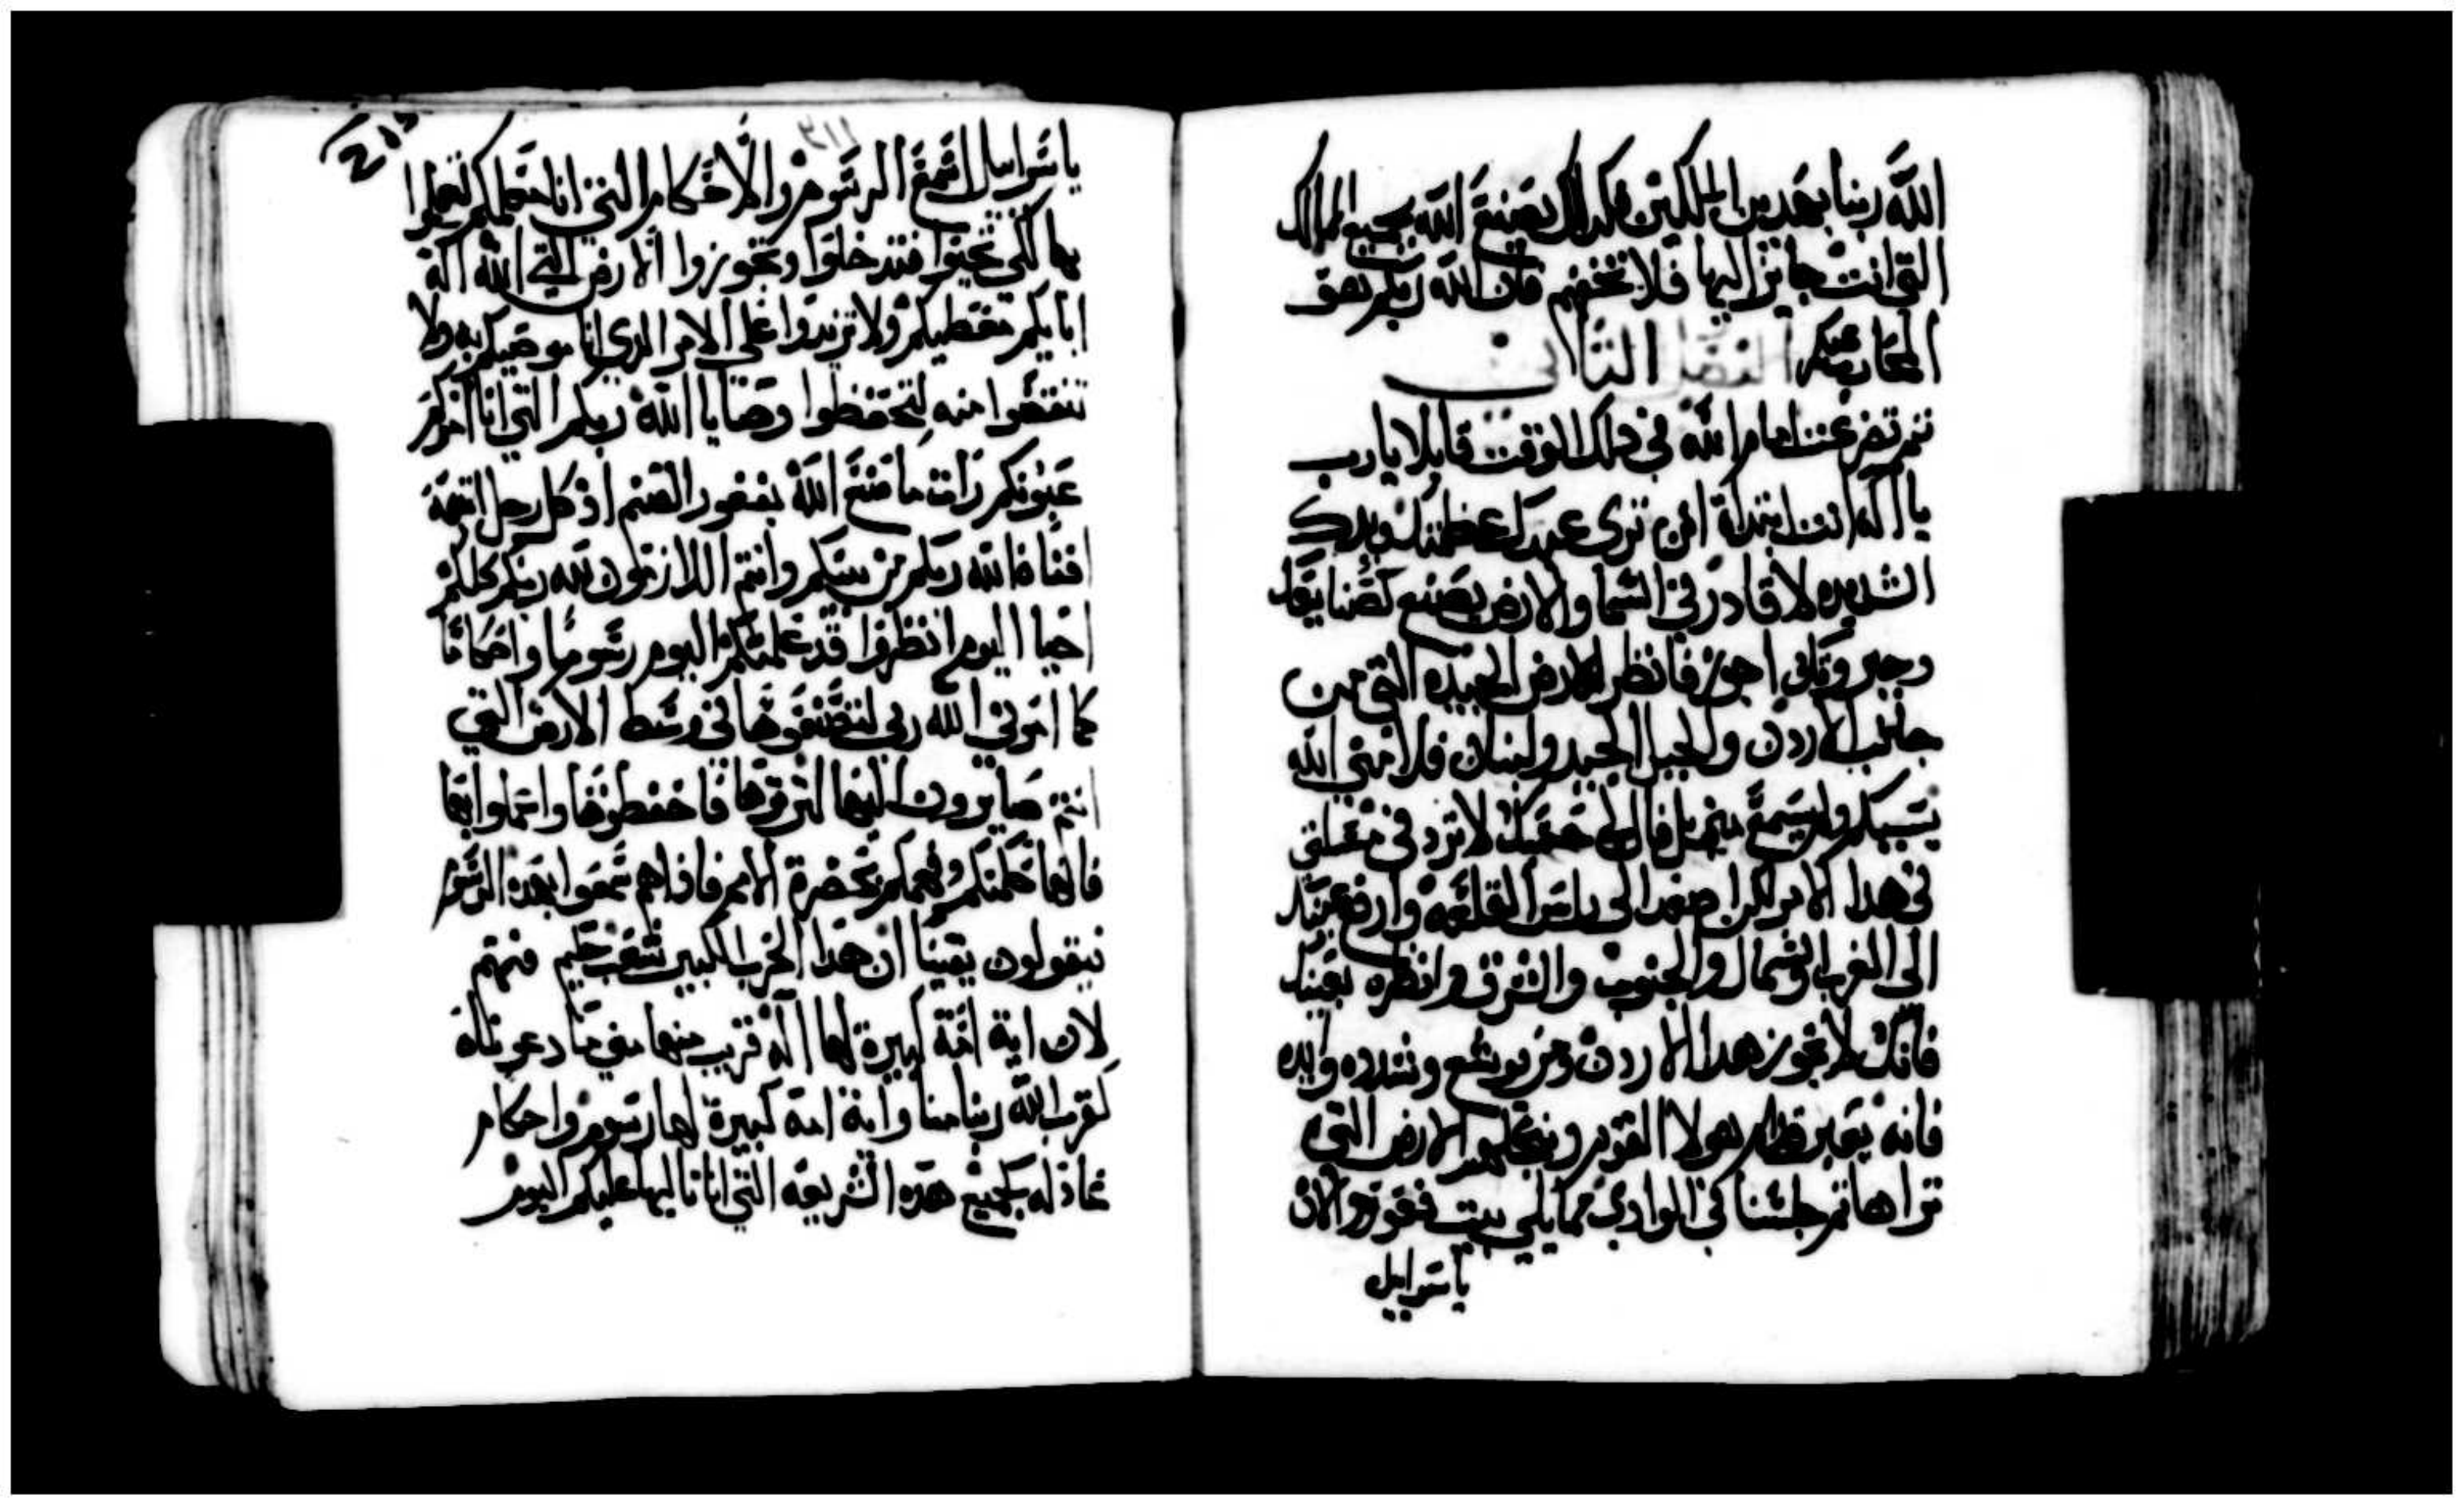 الله ربنا بهدين الملكين هكدلك يصنع الله بجميع الممالك
التي انت جايز اليها فلا تخفهم فان الله ربكم هو
المحارب عنكم الفصل الثالث
ثم تضرعت امام الله في دلك الوقت قايلا يا رب
يا اله انت ابتدات ان تري عبدك عظمتك ويدك
الشديده لا قادر في السما والارض يصنع كصنايعك
وجبروتك اجوز فانظر الارض الجيده التي من
جانب الاردن والجبل الجيد ولبنان فلامني الله
بسببكم ولم يسمع مني بل قال لي حسبك لا تزد في مسلتي
في هدا الامر لكن اصعد الى راس القلعه وارفع عينيك
الى الغرب والشمال والجنوب والشرق وانظره بعينيك
فانك لا تجوز هدا الاردن ومر يوشع وشدده وايده
فانه يعبر قدام هولا القوم وينحلهم الارض التي
تراها ثم جلسنا في الوادي مما يلي بيت فغور والان
ياسراييل
٢١١
215
ياسراييل اسمع الرسوم والاحكام التي انا معلمكم لتعملوا
بها لكي تحيوا فتدخلوا وتحوزوا الارض التي الله اله
ابايكم معطيكم ولا تزيدوا على الامر الدي انا موصيكم به ولا
تنقصوا منه لتحفظوا وصايا الله ربكم التي انا امركم
عيونكم رات ما صنع الله بفغور الصنم اذ كل رجل اتبعه
افناه الله ربكم من بينكم وانتم اللازمون لله ربكم كلكم
احيا اليوم انظروا قد علمتكم اليوم رسوما واحكاما
كما امرني الله ربي لتصنعوها في وسط الارض التي
انتم صايرون اليها لترثوها فاحفظوها واعملوا بها
فانها حكمتكم وفهمكم بحضرة الامم فاذا هم سمعوا بهده الرسوم
فيقولون يقينا ان هذا الحزب الكبير شعب حكيم فهم
لان اية امة كبيرة لها اله قريب منها متى ما دعوناه
كقرب الله ربنا منا واية امة كبيرة لها رسوم واحكام
عادله كجميع هده الشريعه التي انا تاليها عليكم اليوم